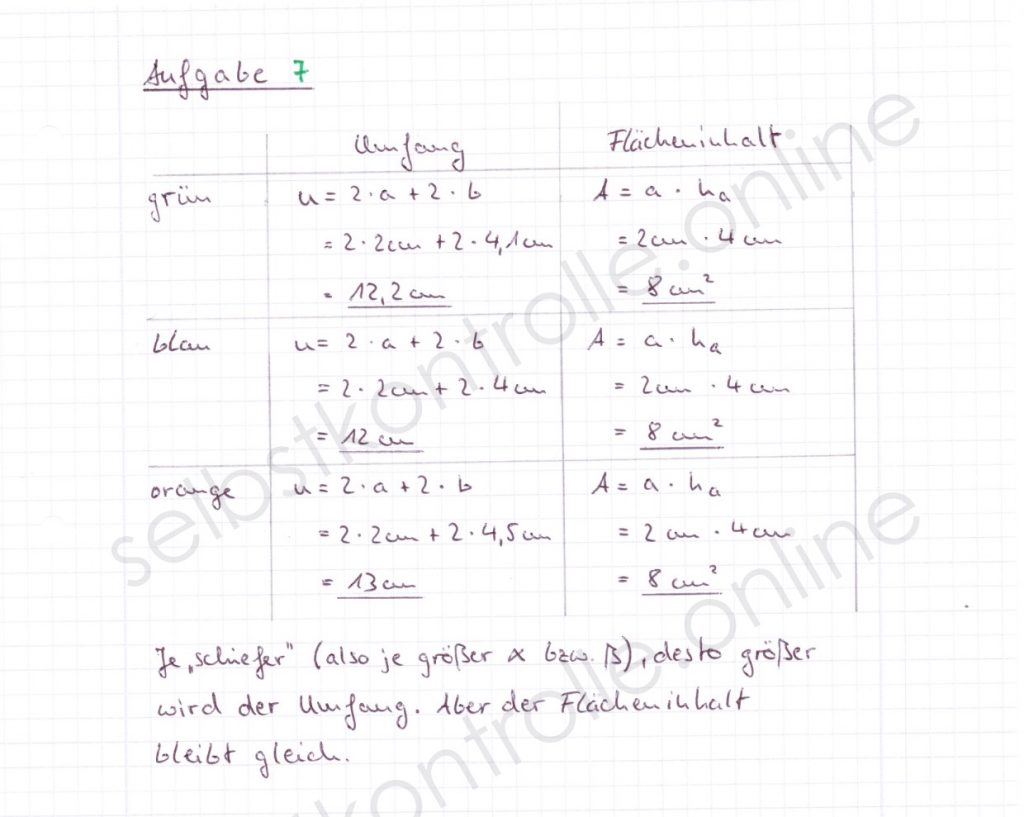 Aufgabe 7
Umfang Flächeninhalt
grün u = 2·a + 2·b A = a · hₐ
= 2·2cm + 2·4,1cm = 2cm · 4cm
= 12,2cm = 8cm²
blau u = 2·a + 2·b A = a · hₐ
= 2·2cm + 2·4cm = 2cm · 4cm
= 12cm = 8cm²
orange u = 2·a + 2·b A = a · hₐ
= 2·2cm + 2·4,5cm = 2cm · 4cm
= 13cm = 8cm²
Je „schiefer" (also je größer α bzw. β), desto größer
wird der Umfang. Aber der Flächeninhalt
bleibt gleich.
selbstkontrolle.online
selbstkontrolle.online